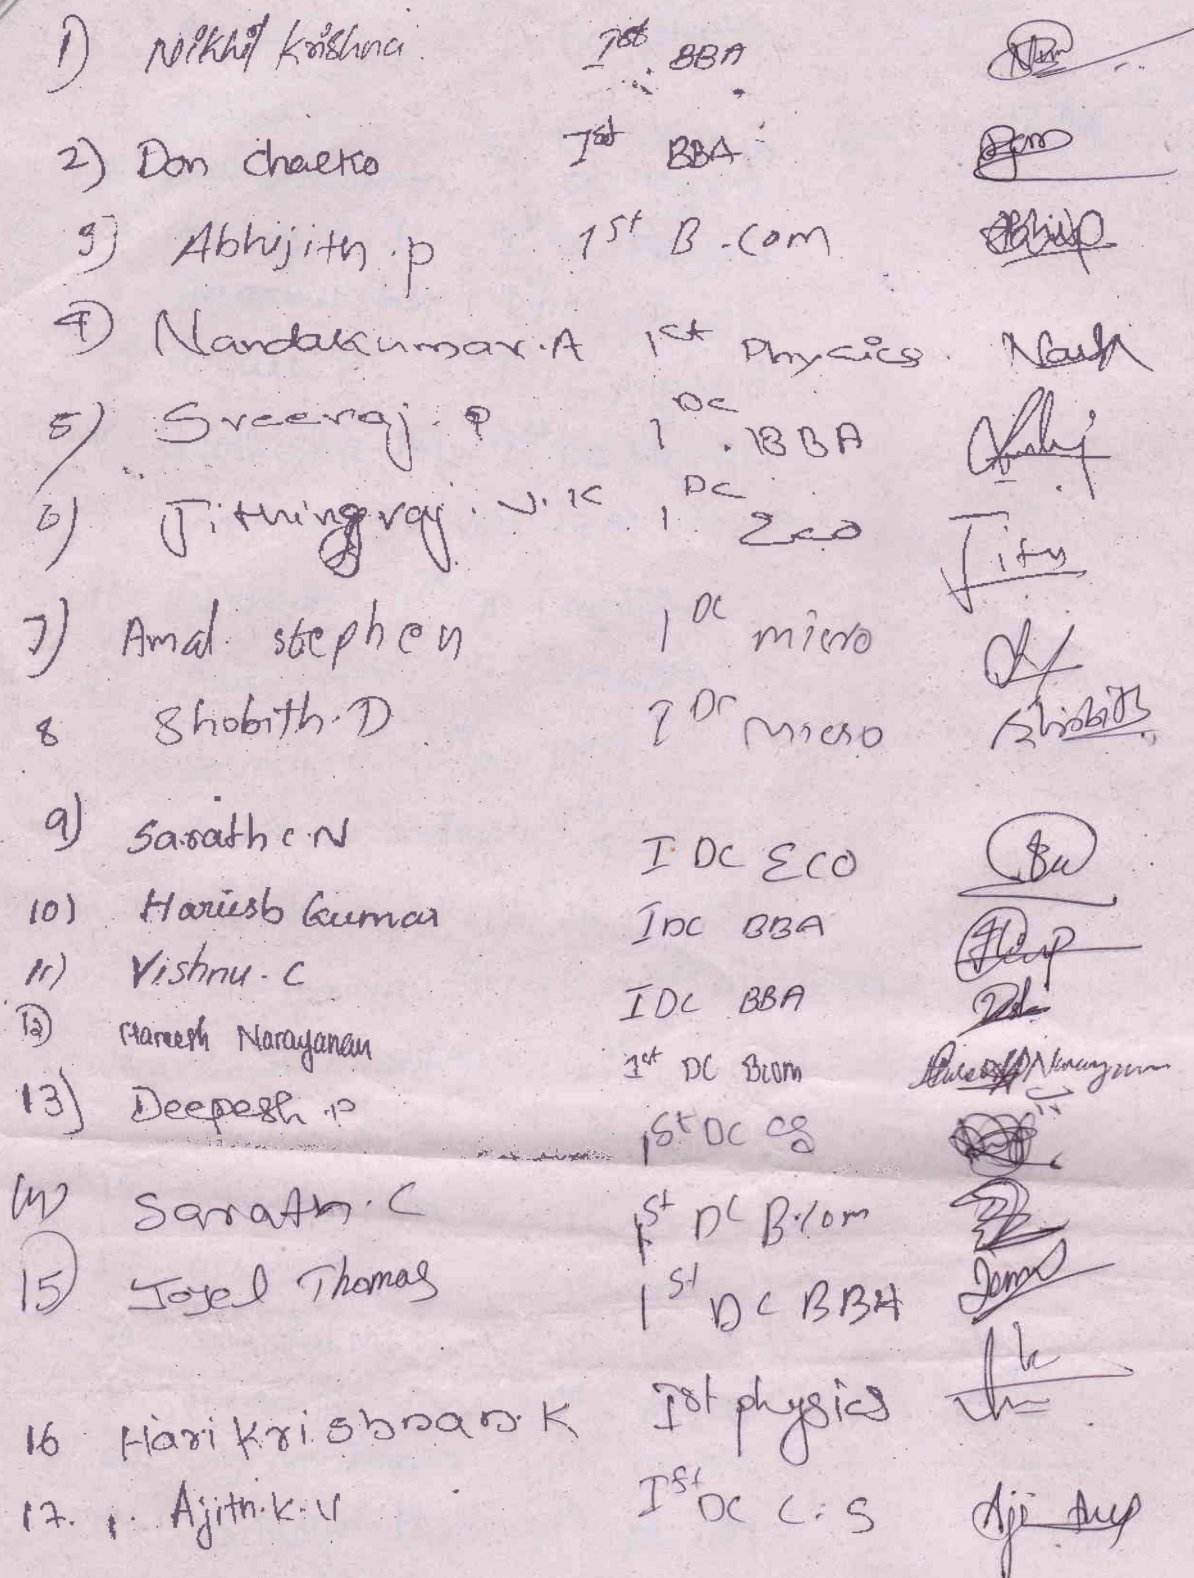 1) Nikhil Krishna Ist BBA
2) Don Chacko Ist BBA
3) Abhijith.p 1st B.com Abhijp
4) Nandakumar.A 1st Physics
5) Sreeraj.P 1 DC BBA
6) Jithingraj.V.K 1 DC Eco Jitu
7) Amal stephen 1 DC micro
8 Shobith.D I DC Micro Shobith
9) Sarath C.N I DC ECO
10) Kumar IDC BBA
11) Vishnu.C IDC BBA
12) Hareesh Narayanan 1st DC Bcom Narayanan
13) Deepesh.P 1st DC CS
14) Sarath.C 1st DC B.Com
15) Jojel Thomas 1st DC BBA
16 Hari Krishnan.K Ist physics
17. Ajith.K.V Ist DC C.S Aji